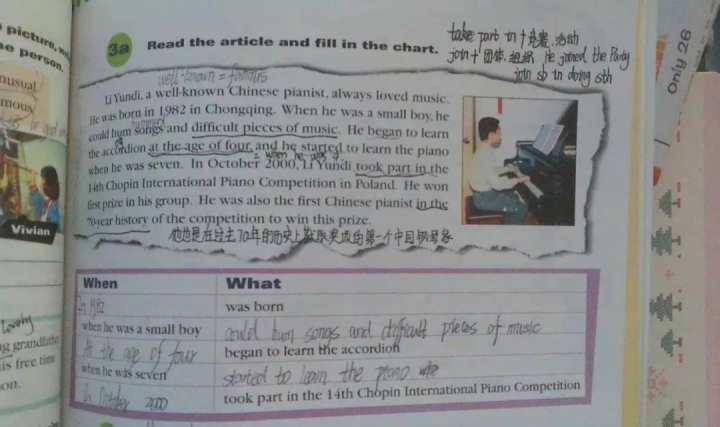 picture,
e person.
nusual
mous
Vivian
lovely
g grandfathe
is free time
on.
3a Read the article and fill in the chart.
take part in + 竞赛.活动
join + 团体.组织 He joined the Party
join sb in doing sth
well-known = famous
Li Yundi, a well-known Chinese pianist, always loved music.
He was born in 1982 in Chongqing. When he was a small boy, he
could hum songs and difficult pieces of music. He began to learn
the accordion at the age of four, and he started to learn the piano
= when he was 4
when he was seven. In October 2000, Li Yundi took part in the
14th Chopin International Piano Competition in Poland. He won
first prize in his group. He was also the first Chinese pianist in the
70-year history of the competition to win this prize.
他也是在过去70年的历史上获取奖项的第一个中国钢琴家
When What
In 1982 was born
when he was a small boy could hum songs and difficult pieces of music
At the age of four began to learn the accordion
when he was seven started to learn the piano
In October 2000 took part in the 14th Chopin International Piano Competition
Only 26